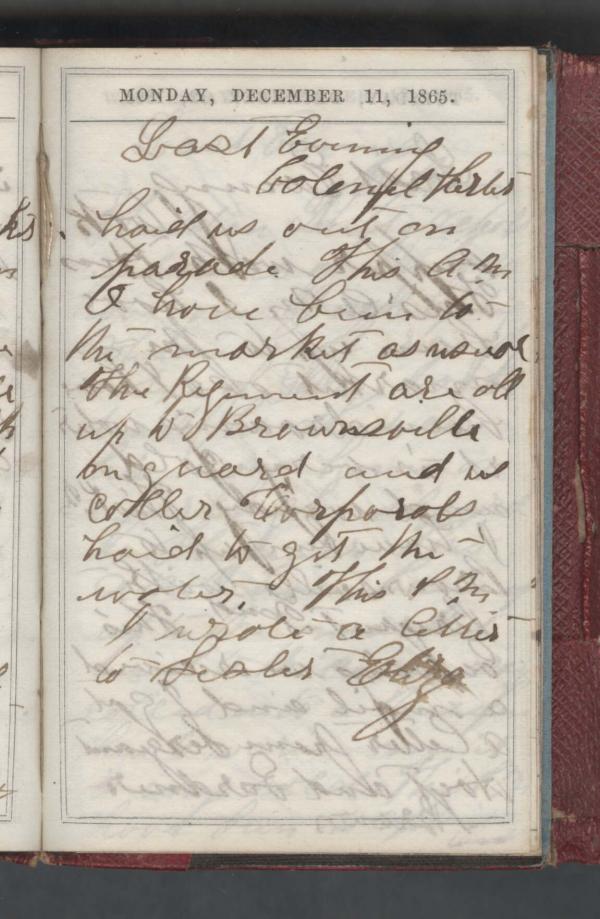 MONDAY, DECEMBER 11, 1865.
Last Evening
Colonel
haid us out on
parade. This A.m
I have bein to
the market as usual
The Regiment are all
up to Brownsville
on guard and us
Coller Corporols
haid to get the
water. This P.m
I wrote a letter
to Sester Eliza